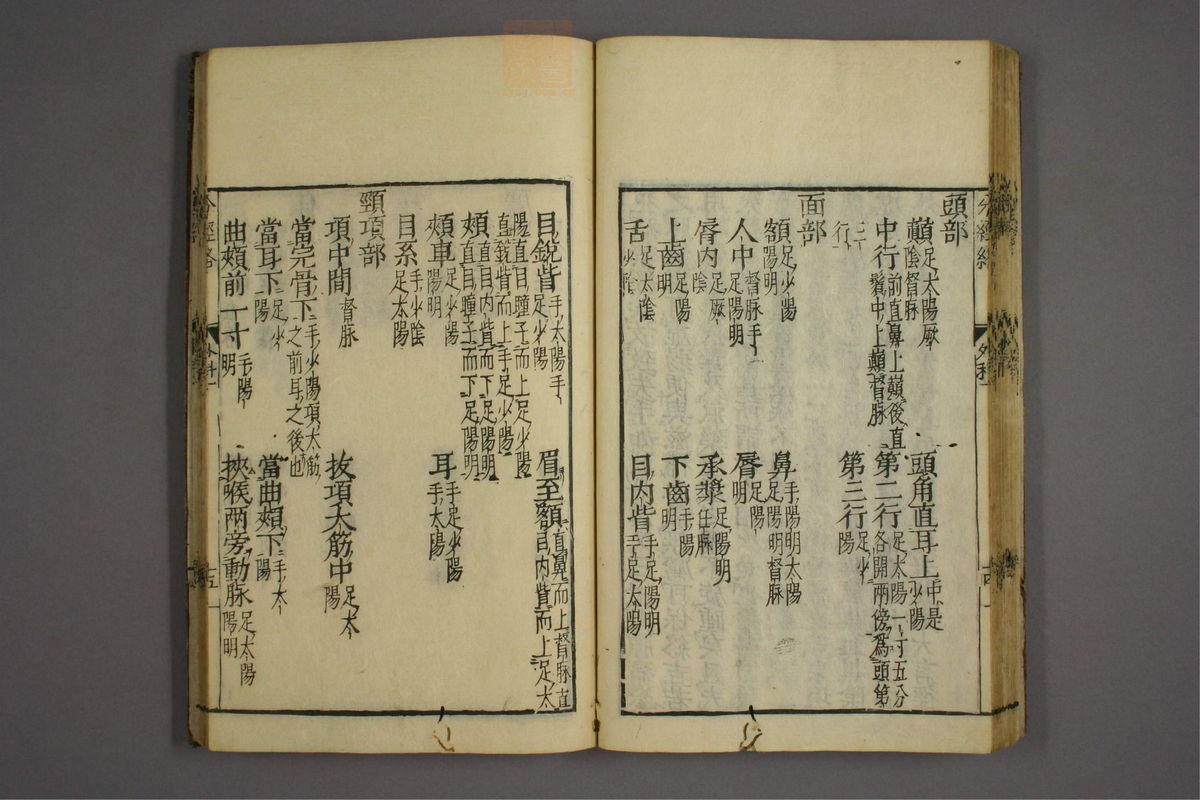 頭部
顛足太陽厥陰督脉 頭角直耳上中是少陽
中行前直鼻上巔後直鬢中上顛督脉 第二行足太陽一寸五分各開兩傍為頭第
三行 第三行足少陽
面部
額足少陽陽明 鼻手陽明太陽足陽明督脉
人中督脉手足陽明 脣足陽明
脣内足厥陰 承漿足陽明任脉
上齒足陽明 下齒手陽明
舌足太陰少陰 目内眥手足陽明手足太陽
目銳眥手太陽手足少陽 眉至額直鼻而上督脉直目内眥而上足太
陽直目瞳子而上足少陽直銳眥而上手足少陽
頰直目内眥而下足陽明直目瞳子而下足陽明
頰車足少陽陽明 耳手足少陽手太陽
目系手少陰足太陽
頸項部
項中間督脉 挾項大筋中足太陽
當完骨下手少陽項大筋之前耳之後也
當耳下足少陽 當曲頰下手太陽
曲頰前一寸手陽明 挾喉兩旁動脉足太陽陽明